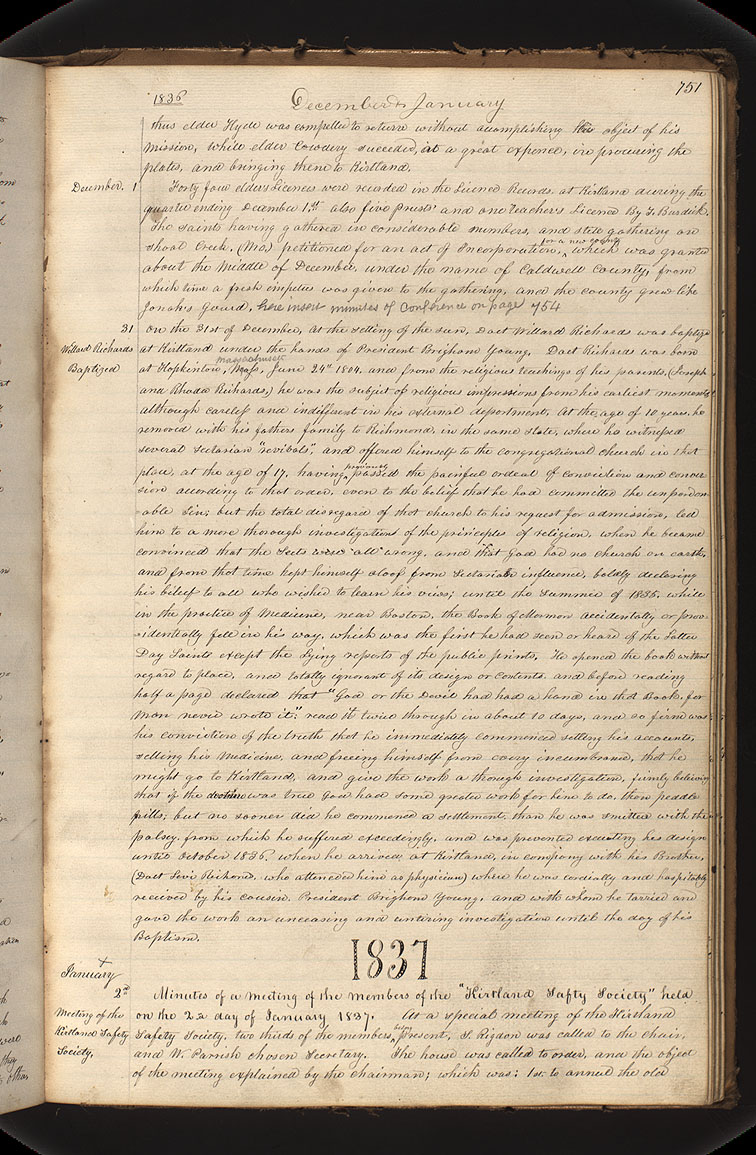 1836 December & January 751
thus elder Hyde was compelled to return without accomplishing this object of his
mission, while elder Cowdery succeeded, at a great expence, in procuring the
plates, and bringing them to Kirtland.
December. 1 Forty four elders Licences were recorded in the Licence Records at Kirtland during the
quarter ending December 1.st also five Priests' and one Teacher's Licence By T. Burdick.
The Saints having gathered in considerable numbers, and still gathering on
for a new county
Shoal Creek. (Mo.) petitioned for an act of Incorporation, which was granted
about the Middle of December, under the name of Caldwell County, from
which time a fresh impetus was given to the gathering, and the county grew like
Jonah's Gourd, here insert minutes of Conference on page 754
31 On the 31st of December, at the setting of the sun, Doct Willard Richards was baptize
Willard Richards at Kirtland under the hands of President Brigham Young, Doct Richards was born
Massachusett
Baptized at Hopkinton, Mass, June 24th 1804. and from the religious teachings of his parents, (Joseph
and Rhoda Richards,) he was the subject of religious impressions from his earliest moments
although careless and indifferent in his external deportment. At the age of 10 years, he
removed with his fathers family to Richmond, in the same state, where he witnessed
several Sectarian "revivals", and offered himself to the congregational church in that
previously
place, at the age of 17, having passed the painful ordeal of conviction and conver
sion according to that order, even to the belief that he had committed the unpardon
-able Sin; but the total disregard of that church to his request for admission, led
him to a more thorough investigation of the principles of religion, when he became
convinced that the Sects were all wrong, and that God had no church on earth,
and from that time kept himself aloof from Sectarian influence, boldly declaring
his belief to all who wished to learn his views; until the Summer of 1835, while
in the practice of Medicine, near Boston, the Book of Mormon accidentally or prov-
-identially fell in his way, which was the first he had seen or heard of the Latter
Day Saints except the Lying reports of the public prints. He opened the book without
regard to place, and totally ignorant of its design or contents. and before reading
half a page declared that "God or the Devil had had a hand in that Book, for
Man never wrote it;" read it twice through in about 10 days, and so firm was
his conviction of the truth that he immediately commenced settling his accounts,
selling his Medicine, and freeing himself from every incumbrance, that he
might go to Kirtland, and give the work a thorough investigation, firmly believing
that if the doctrine was true God had some greater work for him to do, than peddle
pills; but no sooner did he commence a settlement, than he was smitten with the
palsey, from which he suffered exceedingly, and was prevented executing his design
until October 1836. when he arrived at Kirtland, in company with his Brother,
(Doct Levi Richard, who attended him as physician) where he was cordially and hospitably
received by his cousin, President Brigham Young, and with whom he tarried and
gave the work an unceasing and untiring investigation until the day of his
Baptism.
1837
+
January
2nd Minutes of a meeting of the members of the "Kirtland Safty Society" held
Meeting of the on the 2d day of January 1837. At a special meeting of the Kirtland
being
Kirtland Safty Safety Society, two thirds of the members, present, S. Rigdon was called to the Chair,
Society, and W. Parrish chosen Secretary. The house was called to order, and the object
of the meeting explained by the chairman; which was: 1st to annul the old